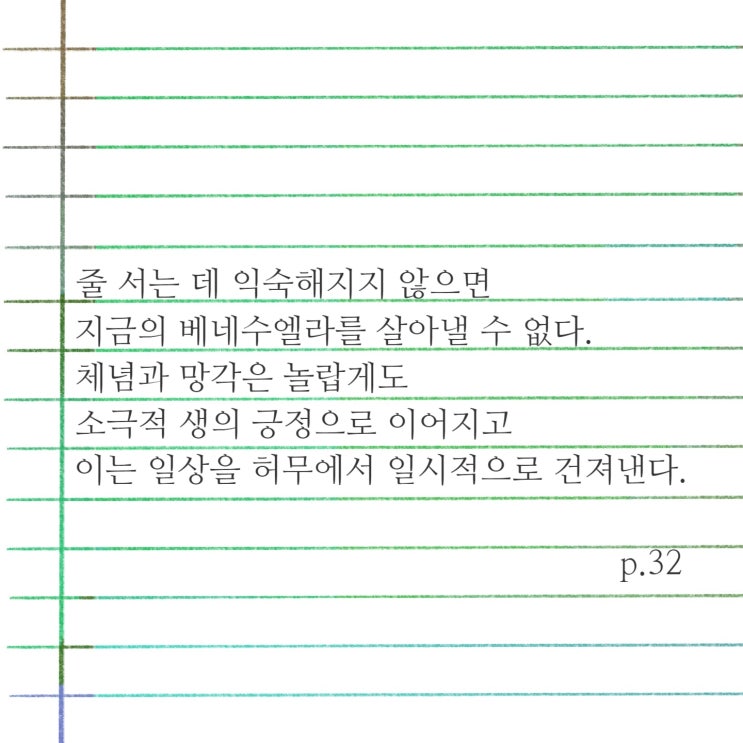 줄 서는 데 익숙해지지 않으면
지금의 베네수엘라를 살아낼 수 없다.
체념과 망각은 놀랍게도
소극적 생의 긍정으로 이어지고
이는 일상을 허무에서 일시적으로 건져낸다.
p.32